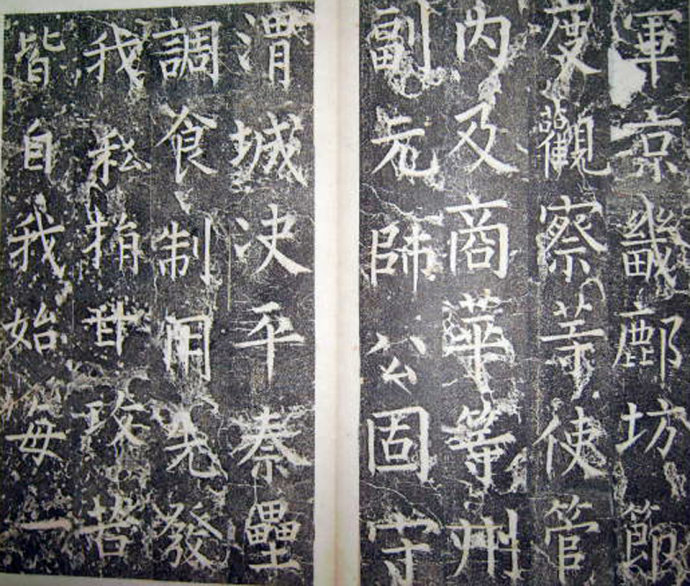 軍京畿鄜坊節
度觀察等使管
内及商華等州
副元帥公固守
渭城决平秦壘
調食制用先發
我私指甘攻苦
皆自我始每一